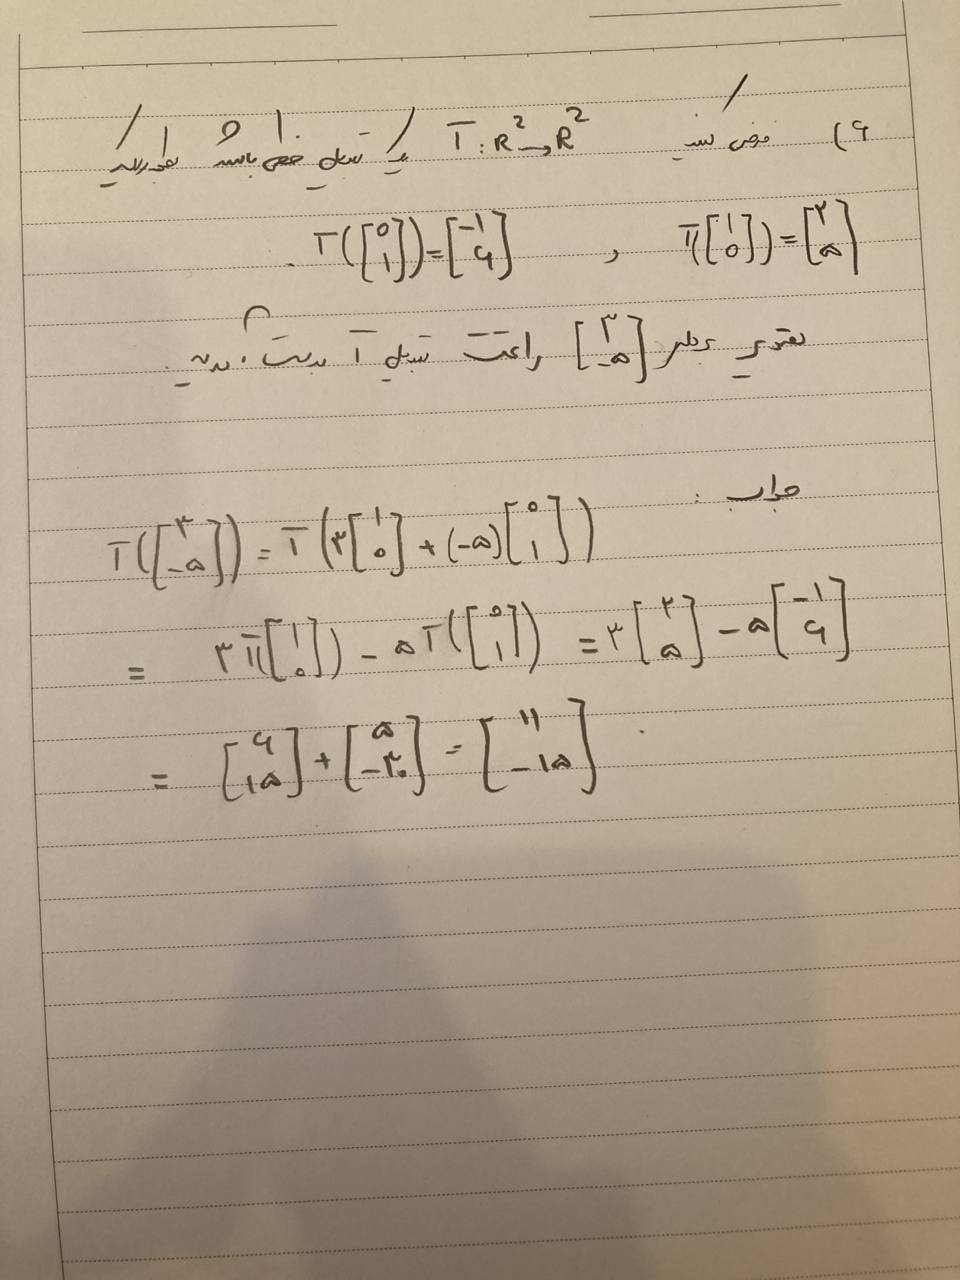 ۶) فرض کنید T: R² → R² یک تبدیل خطی باشد و فرض کنید
T([1 0]) = [۲ ۵] , T([0 1]) = [-۱ ۶] .
تصویر بردار [۳ -۵] را تحت تبدیل T بدست آورید.
جواب :
T([۳ -۵]) = T(۳[1 0] + (-۵)[0 1])
= ۳T([1 0]) - ۵T([0 1]) = ۳[۲ ۵] - ۵[-۱ ۶]
= [۶ ۱۵] + [۵ -۳۰] = [۱۱ -۱۵] .